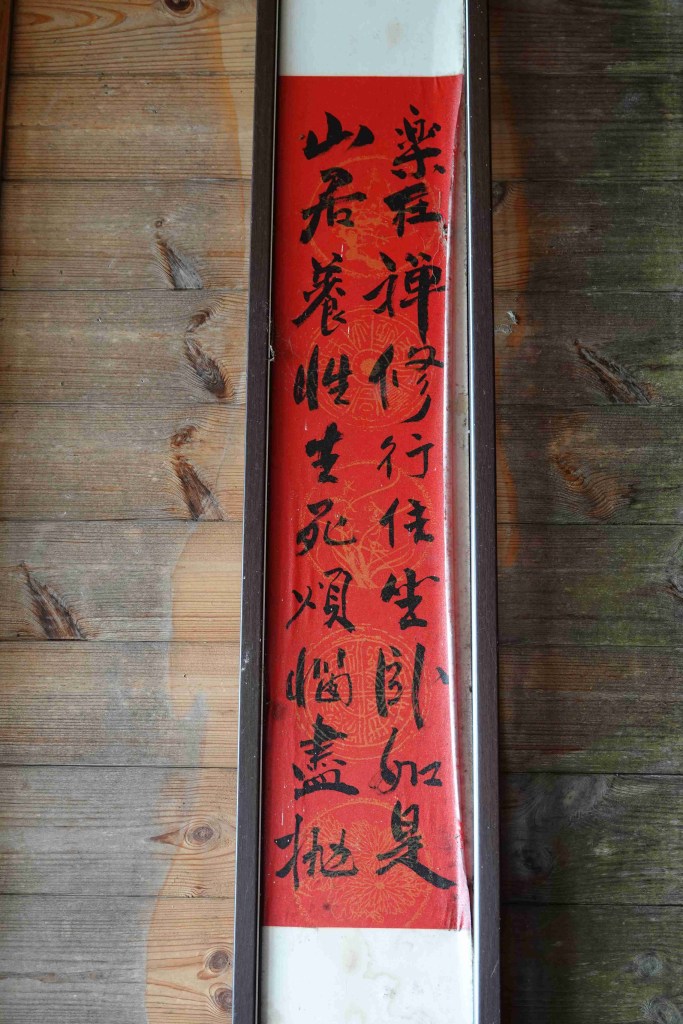 楽在禅修行住坐卧如是
山居養性生死煩惱盡抛